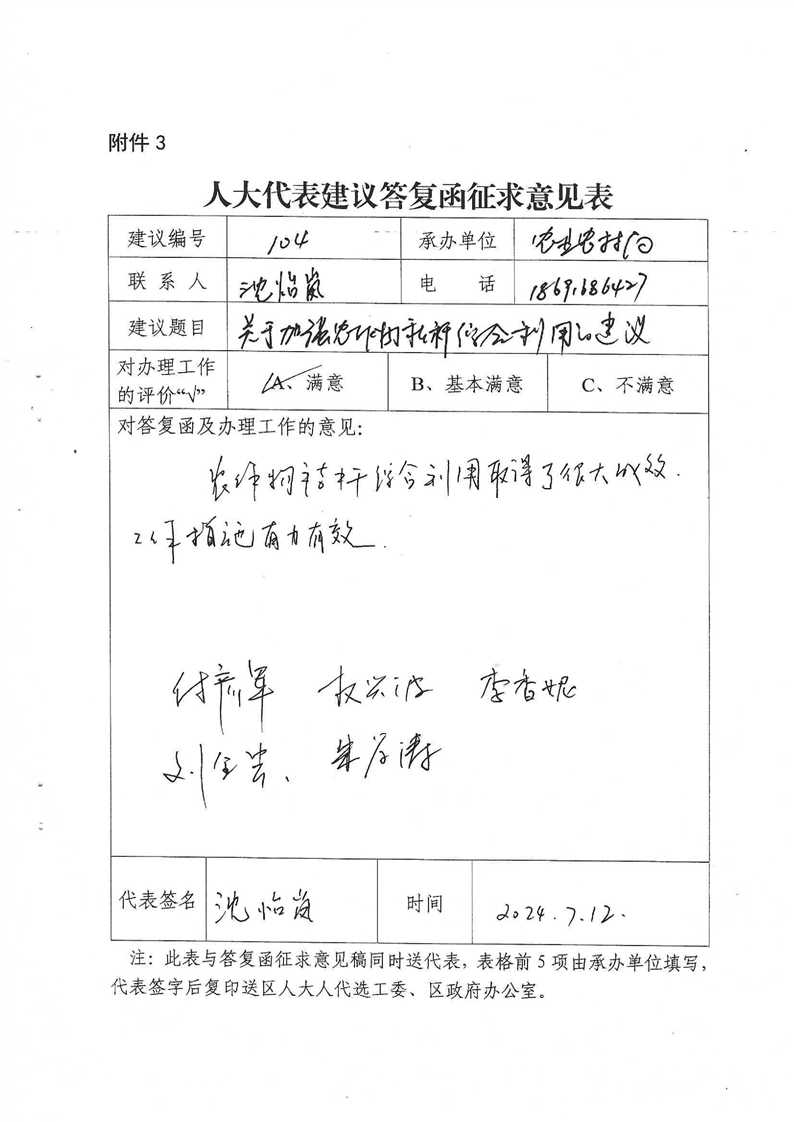 附件 3
人大代表建议答复函征求意见表
建议编号 104 承办单位 农业农村局
联系人 沈怡岚 电话 18691686427
建议题目 关于加强农作物秸秆综合利用的建议
对办理工作的评价“√” A、满意 B、基本满意 C、不满意
对答复函及办理工作的意见：
农作物秸秆综合利用取得了很大成效.
工作措施有力有效.
付彦军 权兴波 李香妮
刘全贵、 朱厚涛
代表签名 沈怡岚 时间 2024.7.12.
注：此表与答复函征求意见稿同时送代表，表格前 5 项由承办单位填写，
代表签字后复印送区人大人代选工委、区政府办公室。